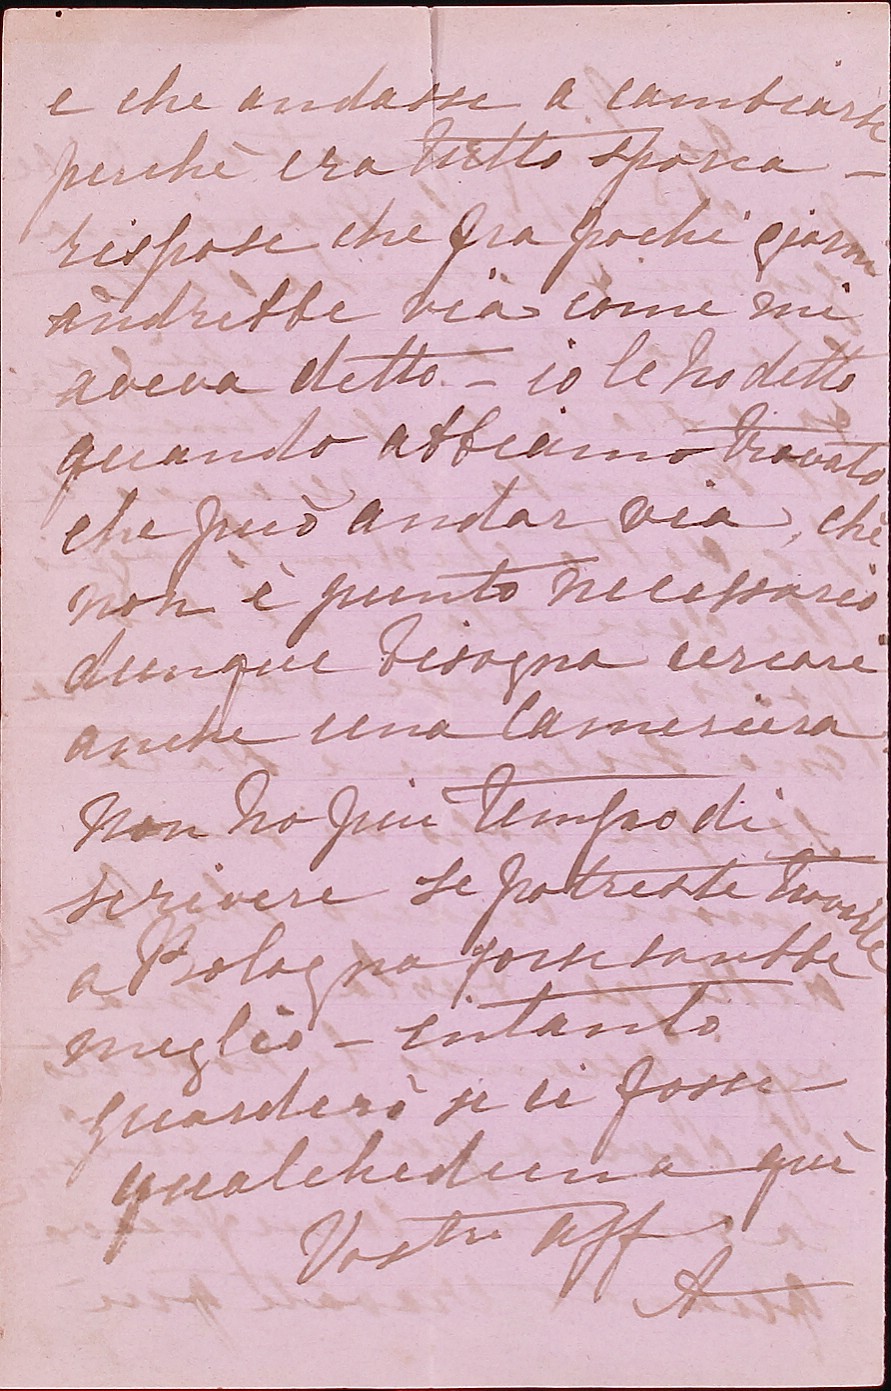 e che andasse a cambiarsi
perchè era tutta sporca –
rispose che fra pochi giorni
andrebbe via come mi
aveva detto. – io le ho detto
quando abbiamo trovato
che può andar via, che
non è punto necessario
dunque bisogna cercare
anche una Cameriera.
Non ho piu tempo di
scrivere se potreste trovarle
a Bologna forse sarebbe
meglio – intanto
guarderò se ci fosse
qualcheduna quì
Vostra aff
A